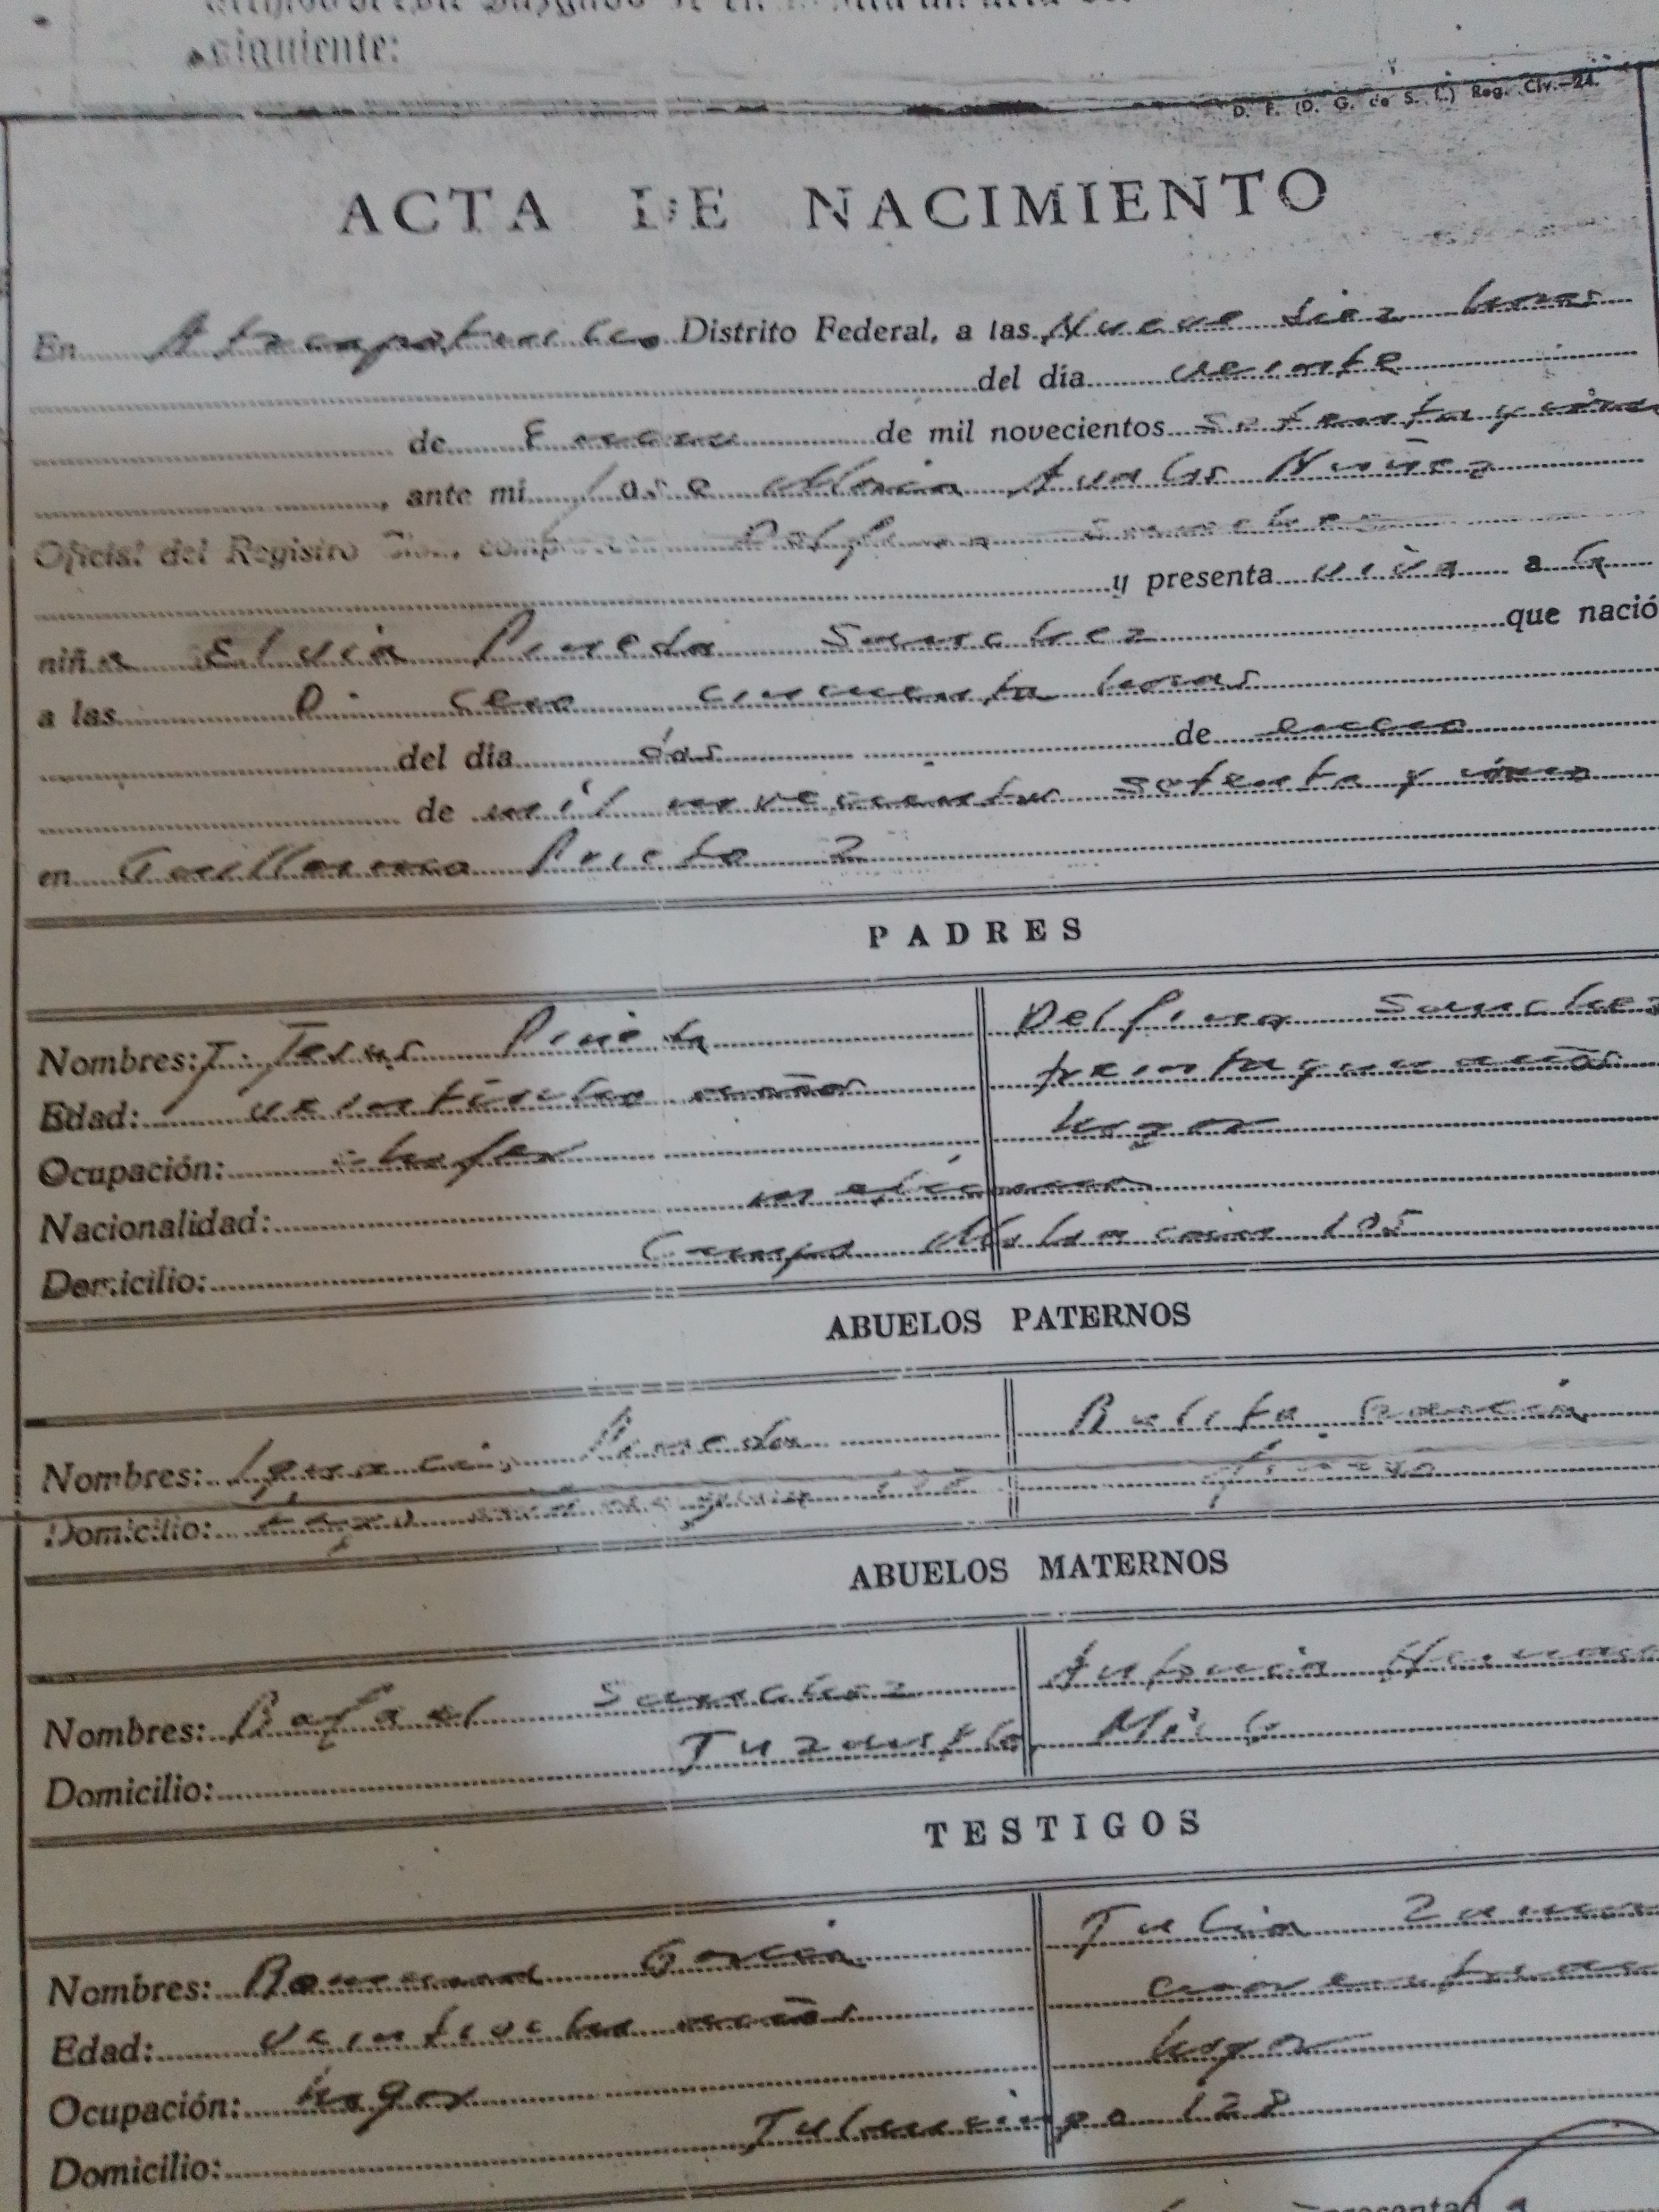 siguiente:
D. F. (D. G. de S. L.) Reg. Civ.—24.
ACTA DE NACIMIENTO
En Atzcapotzalco Distrito Federal, a las Nueve diez horas
del día veinte
de Enero de mil novecientos setenta y cinco
, ante mi Jose Maria Avalos Nuñez
Oficial del Registro Civil, comparece Delfina Sanchez
y presenta viva a la
niña Elvia Pineda Sanchez que nació
a las 0. cero cincuenta horas
del día dos de enero
de mil novecientos setenta y cinco
en Guillermo Prieto 2
PADRES
Nombres: J. Jesus Pineda Delfina Sanchez
Edad: veintiocho años treinta y un años
Ocupación: chofer hogar
Nacionalidad: mexicanos
Domicilio: Campo 105
ABUELOS PATERNOS
Nombres: Pineda Garcia
Domicilio:
ABUELOS MATERNOS
Nombres: Rafael Sanchez Antonia
Domicilio: Tuzantla, Mich
TESTIGOS
Nombres: Garcia Julia
Edad: veintiocho años
Ocupación: hogar hogar
Domicilio: Tulancingo 128